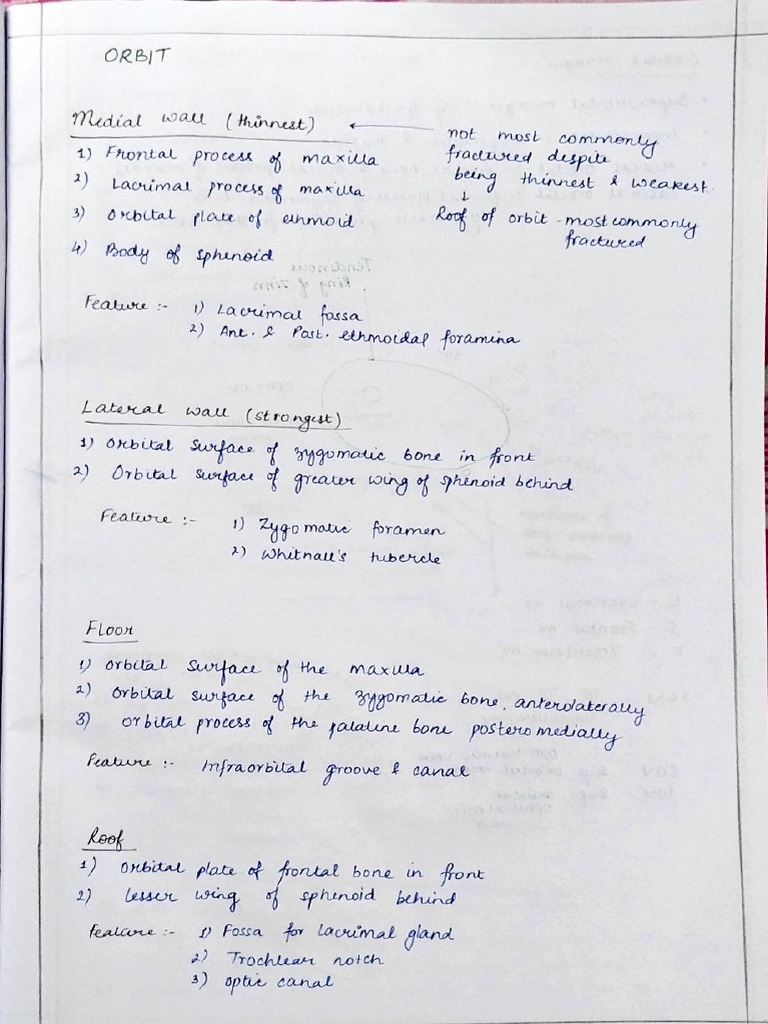 ORBIT
Medial wall (thinnest)
not most commonly
fractured despite
being thinnest & weakest.
↓
Roof of orbit - most commonly
fractured
1) Frontal process of maxilla
2) Lacrimal process of maxilla
3) Orbital plate of ethmoid
4) Body of sphenoid
Feature :- 1) Lacrimal fossa
2) Ant. & Post. ethmoidal foramina
Lateral wall (strongest)
1) Orbital surface of zygomatic bone in front
2) Orbital surface of greater wing of sphenoid behind
Feature :- 1) Zygomatic foramen
2) Whitnall's tubercle
Floor
1) Orbital surface of the maxilla
2) Orbital surface of the zygomatic bone, anterolaterally
3) Orbital process of the palatine bone posteromedially
Feature :- Infraorbital groove & canal
Roof
1) Orbital plate of frontal bone in front
2) Lesser wing of sphenoid behind
Feature :- 1) Fossa for lacrimal gland
2) Trochlear notch
3) Optic canal